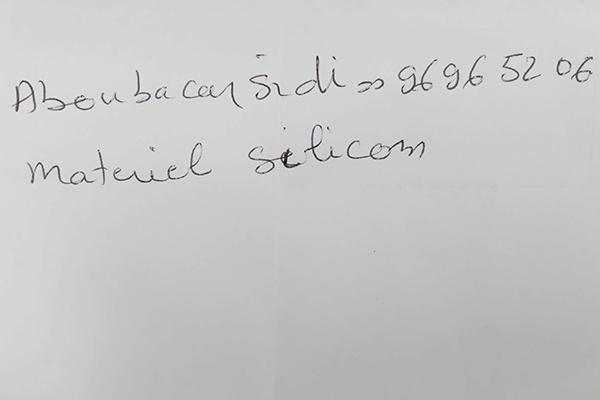 Aboubacar Sidi => 96 96 52 06
materiel silicom